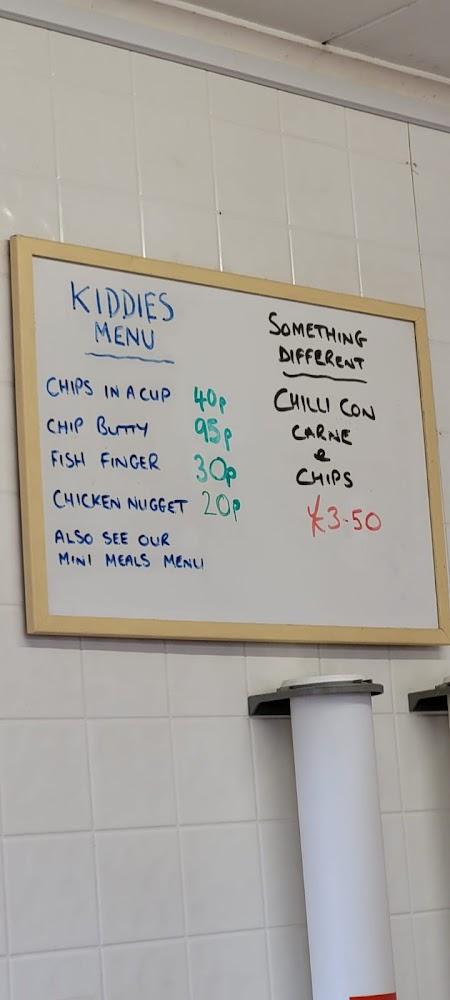 KIDDIES
MENU
CHIPS IN A CUP 40p
CHIP BUTTY 95p
FISH FINGER 30p
CHICKEN NUGGET 20p
ALSO SEE OUR
MINI MEALS MENU
SOMETHING
DIFFERENT
CHILLI CON
CARNE
&
CHIPS
£3.50